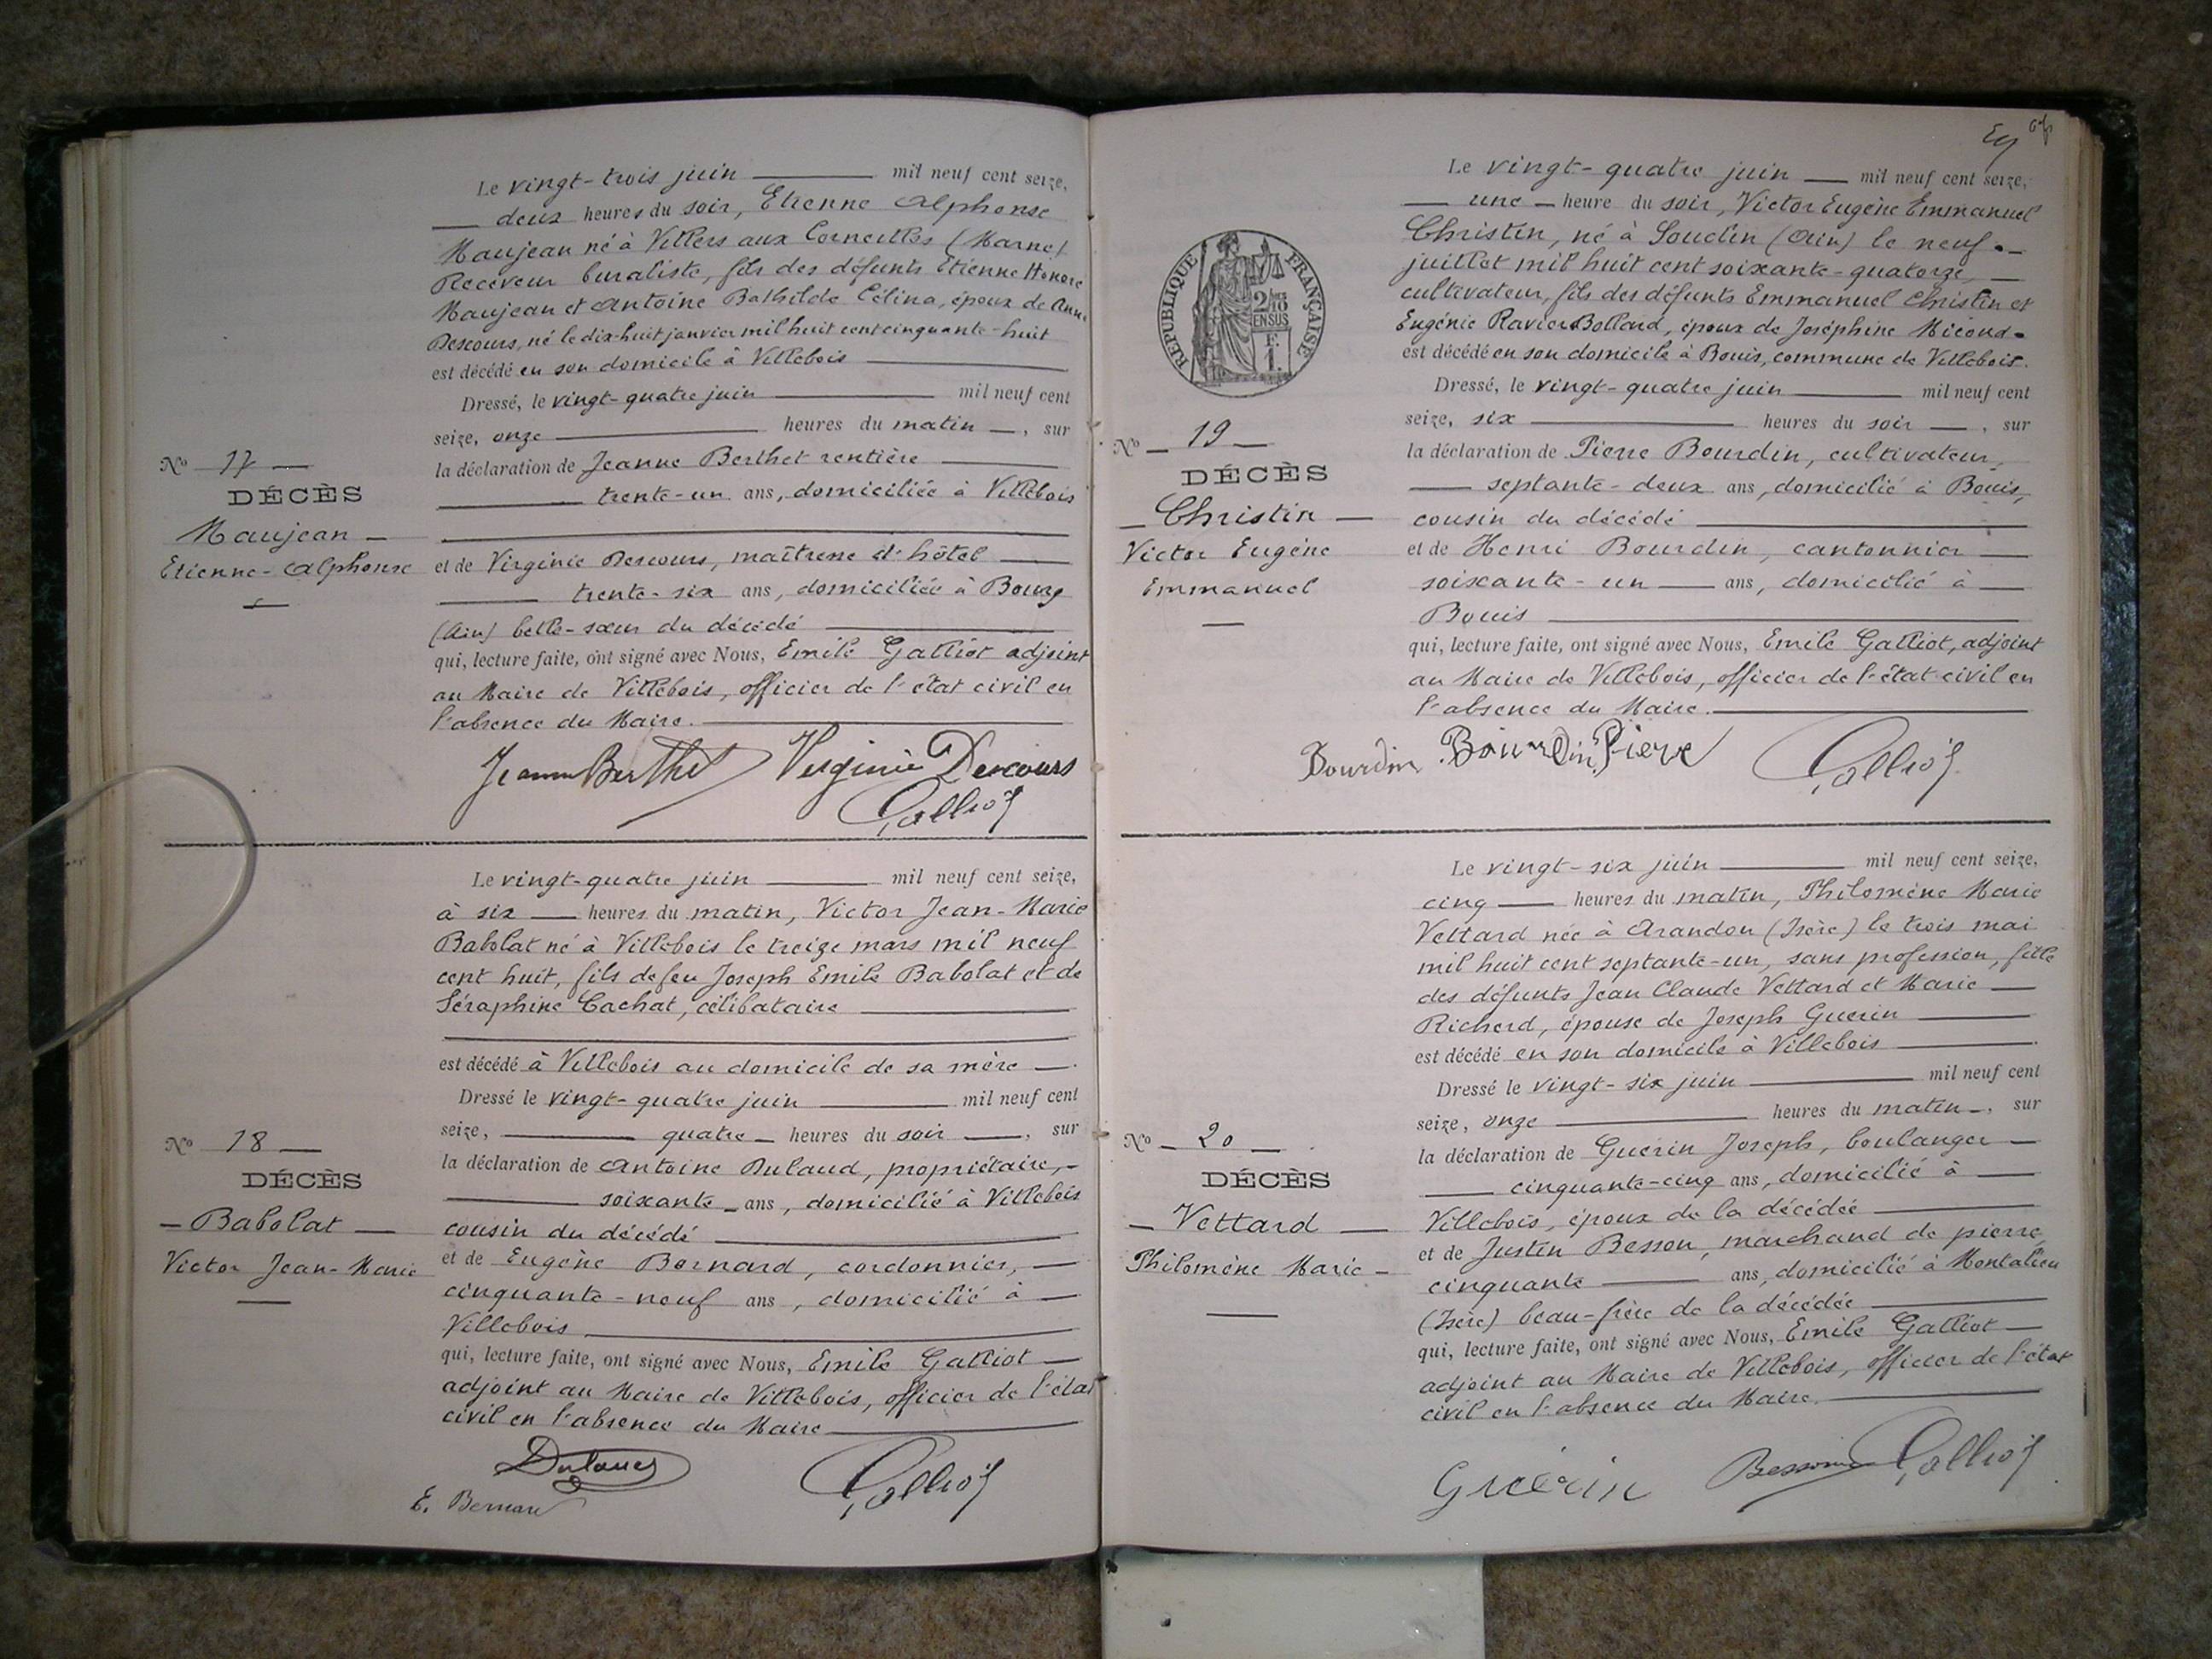 Le vingt-trois juin mil neuf cent seize,
deux heures du soir, Etienne Alphonse
Maujean né à Villers aux Corneilles (Marne)
Receveur buraliste, fils des défunts Etienne Honoré
Maujean et Antoine Bathilde Célina, époux de Anne
Descours, né le dix-huit janvier mil huit cent cinquante-huit
est décédé en son domicile à Villebois
Dressé, le vingt-quatre juin mil neuf cent
seize, onze heures du matin, sur
la déclaration de Jeanne Berthet rentière
trente-un ans, domiciliée à Villebois
et de Virginie Descours, maîtresse d'hôtel
trente-six ans, domiciliée à Bourg
(Ain) belle-sœur du décédé
qui, lecture faite, ont signé avec Nous, Emile Galliot adjoint
au Maire de Villebois, officier de l'état civil en
l'absence du Maire.
Jeanne Berthet Virginie Descours
Galliot
No 17
DÉCÈS
Maujean
Etienne-Alphonse
Le vingt-quatre juin mil neuf cent seize,
à six heures du matin, Victor Jean-Marie
Babolat né à Villebois le treize mars mil neuf
cent huit, fils de feu Joseph Emile Babolat et de
Séraphine Cachat, célibataire
est décédé à Villebois au domicile de sa mère
Dressé le vingt-quatre juin mil neuf cent
seize, quatre heures du soir, sur
la déclaration de Antoine Dulaud, propriétaire,
soixante ans, domicilié à Villebois
cousin du décédé
et de Eugène Bernard, cordonnier,
cinquante-neuf ans, domicilié à
Villebois
qui, lecture faite, ont signé avec Nous, Emile Galliot
adjoint au Maire de Villebois, officier de l'état
civil en l'absence du Maire
Dulaud
E. Bernard Galliot
No 18
DÉCÈS
Babolat
Victor Jean-Marie
Le vingt-quatre juin mil neuf cent seize,
une heure du soir, Victor Eugène Emmanuel
Christin, né à Soudin (Ain) le neuf
juillet mil huit cent soixante-quatorze,
cultivateur, fils des défunts Emmanuel Christin et
Eugénie Ravier Bollard, époux de Joséphine Micoud
est décédé en son domicile à Bouis, commune de Villebois.
Dressé, le vingt-quatre juin mil neuf cent
seize, six heures du soir, sur
la déclaration de Pierre Bourdin, cultivateur,
septante-deux ans, domicilié à Bouis,
cousin du décédé
et de Henri Bourdin, cantonnier
soixante-un ans, domicilié à
Bouis
qui, lecture faite, ont signé avec Nous, Emile Galliot, adjoint
au Maire de Villebois, officier de l'état civil en
l'absence du Maire.
Bourdin Bourdin Pierre Galliot
RÉPUBLIQUE FRANÇAISE
2/10
EN SUS
F.
1.
No 19
DÉCÈS
Christin
Victor Eugène
Emmanuel
Le vingt-six juin mil neuf cent seize,
cinq heures du matin, Philomène Marie
Vettard née à Arandon (Isère) le trois mai
mil huit cent septante-un, sans profession, fille
des défunts Jean Claude Vettard et Marie
Richerd, épouse de Joseph Guerin
est décédé en son domicile à Villebois
Dressé le vingt-six juin mil neuf cent
seize, onze heures du matin, sur
la déclaration de Guerin Joseph, boulanger
cinquante-cinq ans, domicilié à
Villebois, époux de la décédée
et de Justin Besson, marchand de pierre
cinquante ans, domicilié à Montalieu
(Isère) beau-frère de la décédée
qui, lecture faite, ont signé avec Nous, Emile Galliot
adjoint au Maire de Villebois, officier de l'état
civil en l'absence du Maire.
Guérin Besson Galliot
No 20
DÉCÈS
Vettard
Philomène Marie